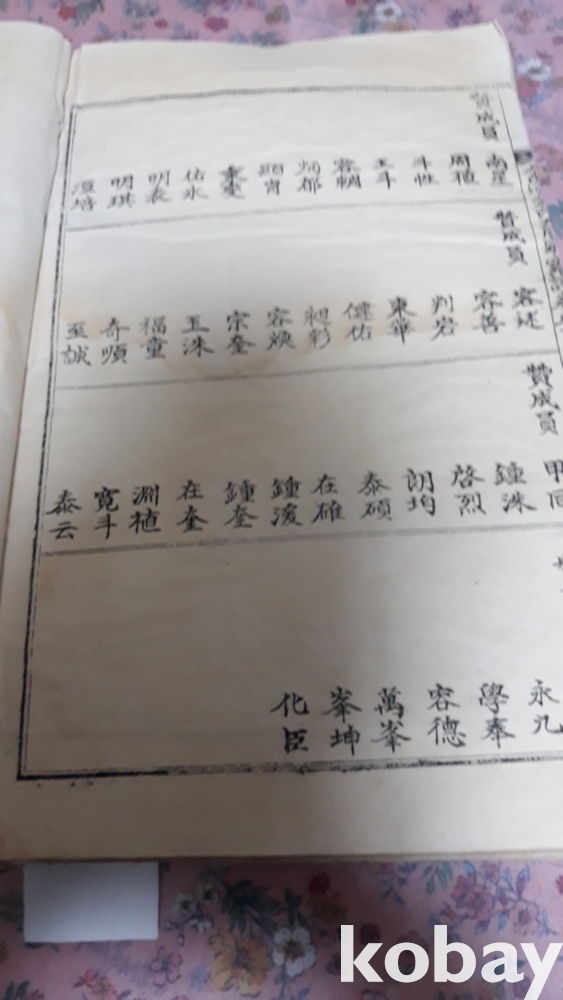 贊成員
尚星
周植
斗性
王斗
容稠
炳郁
顯冑
佑永
明表
明琪
贊成員
容述
容善
判岩
東華
健佑
昶彩
容煥
宗奎
玉洙
福童
奇順
至誠
贊成員
甲同
鍾洙
啓烈
朗均
泰碩
在確
鍾湲
鍾奎
在奎
淵植
寬斗
泰云
永九
學奉
容德
萬峯
峯坤
化臣
kobay